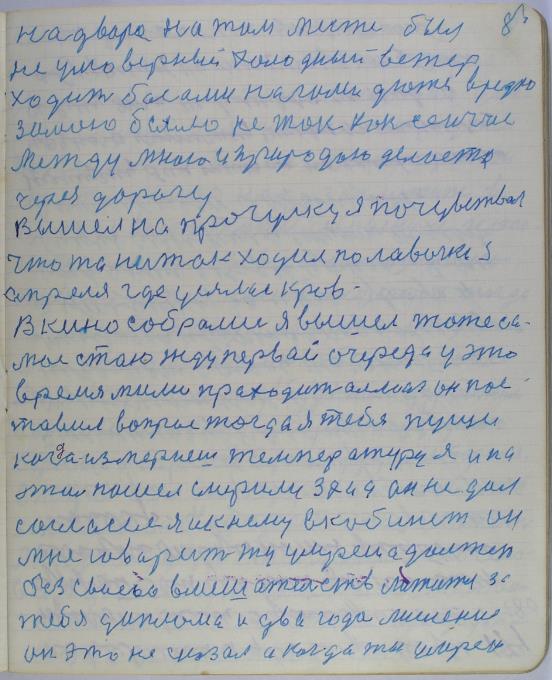 на двара на том месте был 8
не умоверный холодный ветер
ходит басами нагами даже вредно
зимою было не так как сейчас
между мною и природою делоста
через дорогу
Вышел на прогулку я почувствовал
что та не так ходил по лавочке 5
апреля где укров-
В кино собрались я вышел тоже са-
мое стаю жду первай очереда у это
время мимо праходит он пос-
тавил вопрос тогда я тебя пущу
когда измериеш температуру я и па
этом пошел смерили 37 и 4 он не дал
согласся я к нему в кобинет он
мне говарит ты умреш а должен
без своего вмешатеьств за
тебя диплома и два года лишение
он это не сказал а когда ты умреш